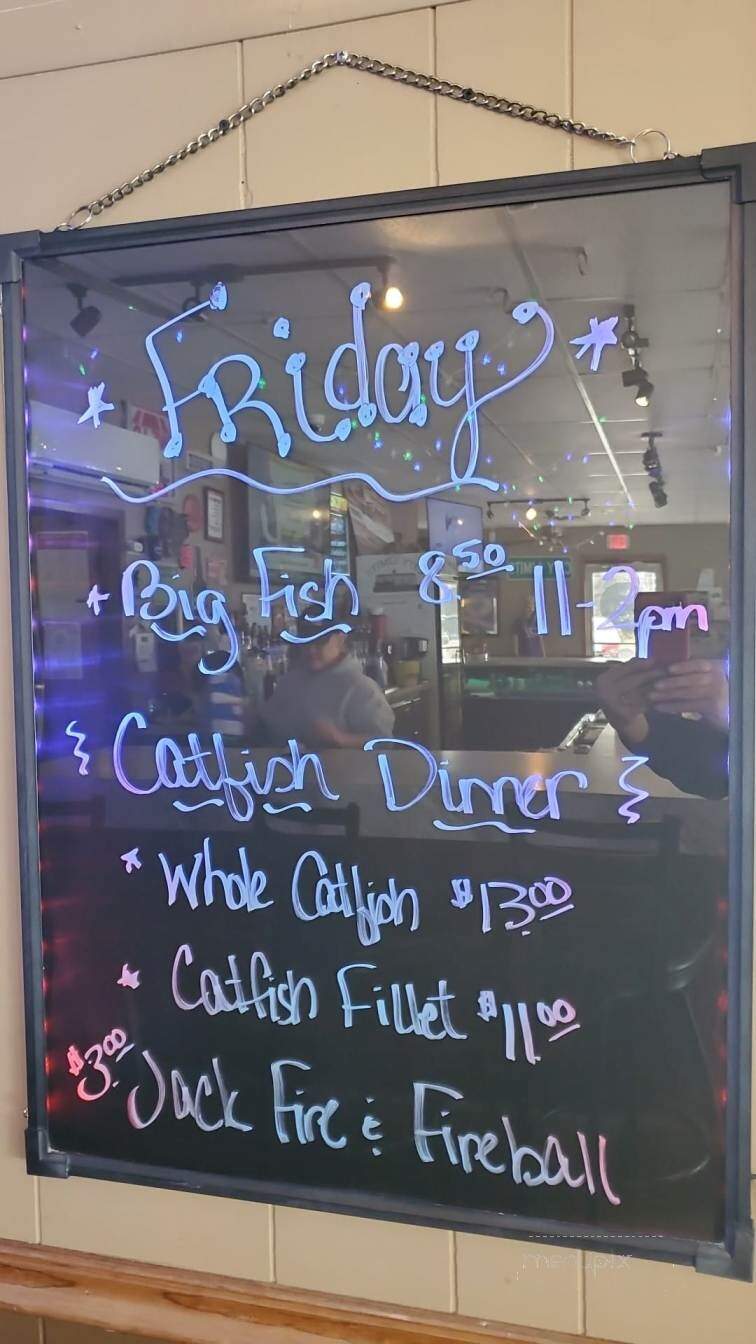 Friday
Big Fish 8.50 11-2pm
Catfish Dinner
Whole Catfish $13.00
Catfish Fillet $11.00
$3.00 Jack Fire & Fireball
menupix